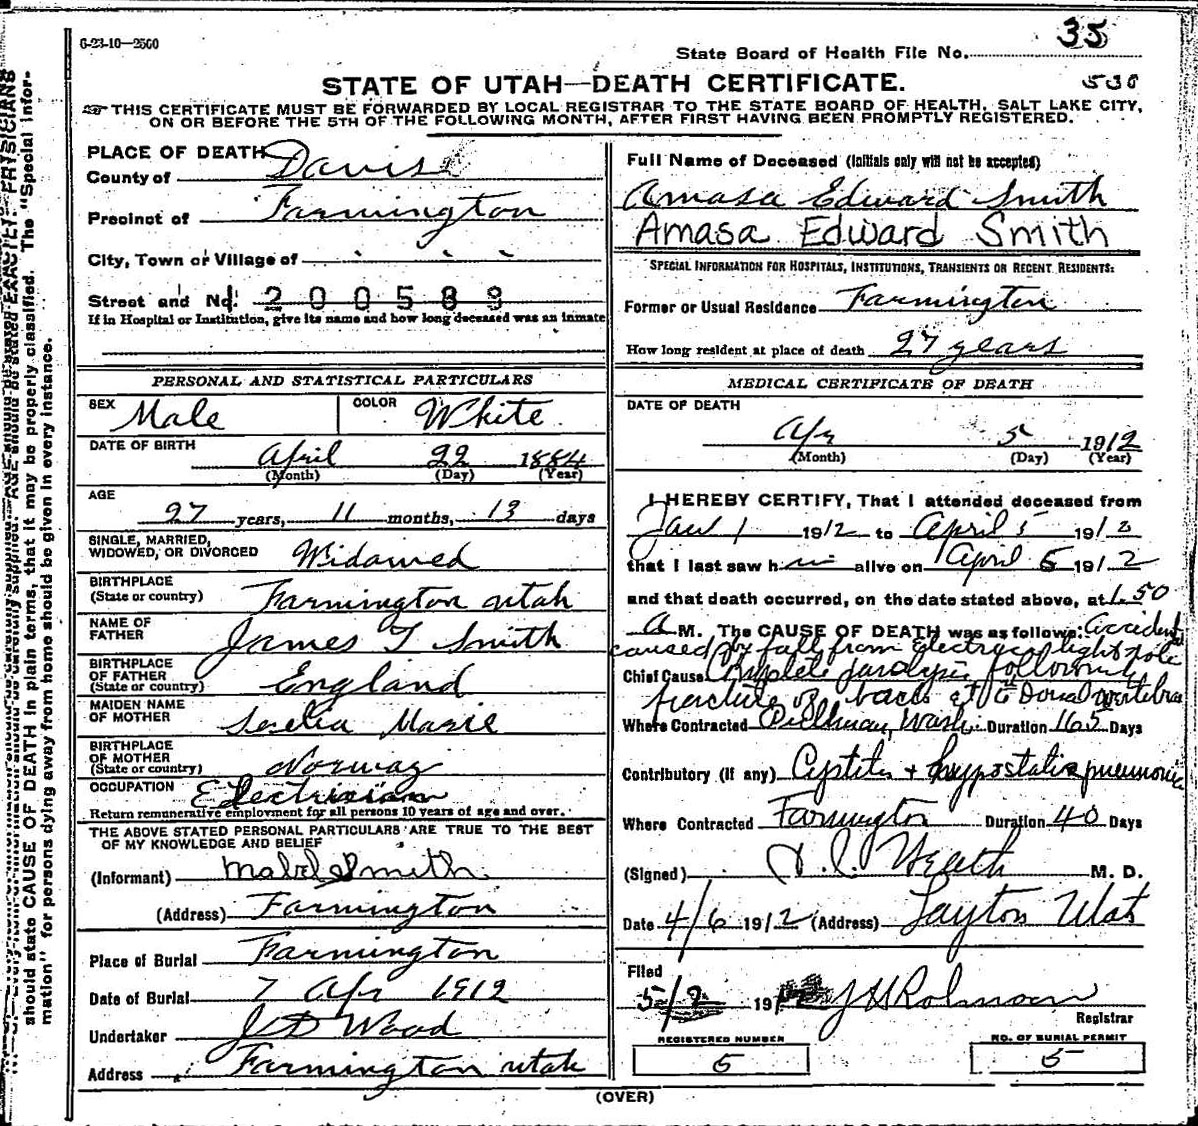 6-23-10—2500
State Board of Health File No. 35
STATE OF UTAH—DEATH CERTIFICATE.
THIS CERTIFICATE MUST BE FORWARDED BY LOCAL REGISTRAR TO THE STATE BOARD OF HEALTH, SALT LAKE CITY,
ON OR BEFORE THE 5TH OF THE FOLLOWING MONTH, AFTER FIRST HAVING BEEN PROMPTLY REGISTERED.
PLACE OF DEATH
County of Davis
Precinct of Farmington
City, Town or Village of
Street and No. 1200589
If in Hospital or Institution, give its name and how long deceased was an inmate
PERSONAL AND STATISTICAL PARTICULARS
SEX Male COLOR White
DATE OF BIRTH
April 22 1884
(Month) (Day) (Year)
AGE
27 years, 11 months, 13 days
SINGLE, MARRIED,
WIDOWED, OR DIVORCED Widowed
BIRTHPLACE
(State or country) Farmington Utah
NAME OF
FATHER James T Smith
BIRTHPLACE
OF FATHER
(State or country) England
MAIDEN NAME
OF MOTHER Marie
BIRTHPLACE
OF MOTHER
(State or country) Norway
OCCUPATION Electrician
Return remunerative employment for all persons 10 years of age and over.
THE ABOVE STATED PERSONAL PARTICULARS ARE TRUE TO THE BEST
OF MY KNOWLEDGE AND BELIEF
(Informant) Mabel Smith
(Address) Farmington
Place of Burial Farmington
Date of Burial 7 Apr 1912
Undertaker J D Wood
Address Farmington Utah
Full Name of Deceased (Initials only will not be accepted)
Amasa Edward Smith
Amasa Edward Smith
SPECIAL INFORMATION FOR HOSPITALS, INSTITUTIONS, TRANSIENTS OR RECENT RESIDENTS:
Former or Usual Residence Farmington
How long resident at place of death 27 years
MEDICAL CERTIFICATE OF DEATH
DATE OF DEATH
Apr 5 1912
(Month) (Day) (Year)
I HEREBY CERTIFY, That I attended deceased from
Jan 1 1912 to April 5 1912
that I last saw him alive on April 5 1912
and that death occurred, on the date stated above, at 1.50
A M. The CAUSE OF DEATH was as follows: accident
caused by fall from Electrical light pole
Chief Cause Complete paralysis following
fracture of back at 6th Dorsal vertebra
Where Contracted Pullman, Wash. Duration 165 Days
Contributory (if any) Cystitis + hypostatic pneumonia
Where Contracted Farmington Duration 40 Days
(Signed) M. D.
Date 4/6 1912 (Address) Layton Utah
Filed
5/2 191 Registrar
REGISTERED NUMBER
5
NO. OF BURIAL PERMIT
5
(OVER)
should state CAUSE OF DEATH in plain terms, that it may be properly classified. The "Special Infor-
mation" for persons dying away from home should be given in every instance.